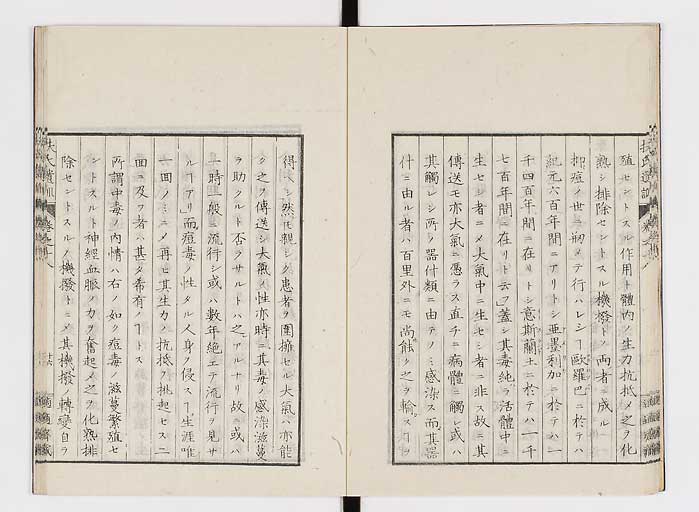 殖セントスル作用ト體内ノ生力抗抵〆之ヲ化
熟シ排除セントスル機撥トノ両者ニ成ル
抑痘ノ世ニ剏メテ行ハレシヿ歐羅巴ニ於テハ
紀元六百年間ニアリトシ亜墨利加ニ於テハ一
千四百年間ニ在リトシ意斯蘭土ニ於テハ一千
七百年間ニ在リト云フ蓋シ其毒純ラ活體中ニ
生セシ者ニ〆大氣中ニ生セシ者ニ非ス故ニ其
傳送モ亦大氣ニ憑ラス直チニ病體ニ觸レ或ハ
其觸レシ所ノ器什類ニ由テノミ感染ス而其器
什ニ由ル者ハ百里外ニモ尚能ク之ヲ輸スヿヲ
得ヘシ然𪜈親シク患者ヲ圍擁セル大氣ハ亦能
ク之ヲ傳送シ大氣ノ性亦時ニ其毒ノ感染滋蔓
ヲ助クルト否ラサルトハ之アルナリ故ニ或ハ
一時一般ニ流行シ或ハ數年絶エテ流行ヲ見サ
ルヿアリ而痘毒ノ性タル人身ヲ侵スヿ生涯唯
一回ノミニ〆再ヒ其生力ノ抗抵ヲ挑起セス二
回ニ及フ者ハ其タ希有ノヿトス
所謂中毒ノ内情ハ右ノ如ク痘毒ノ滋蔓繁殖セ
ントスルト神經血脈ノ力ヲ奮起〆之ヲ化熟排
除セントスルノ機撥トニ〆其機撥ノ轉變自ラ
扶氏遺訓
十六
適適齋藏